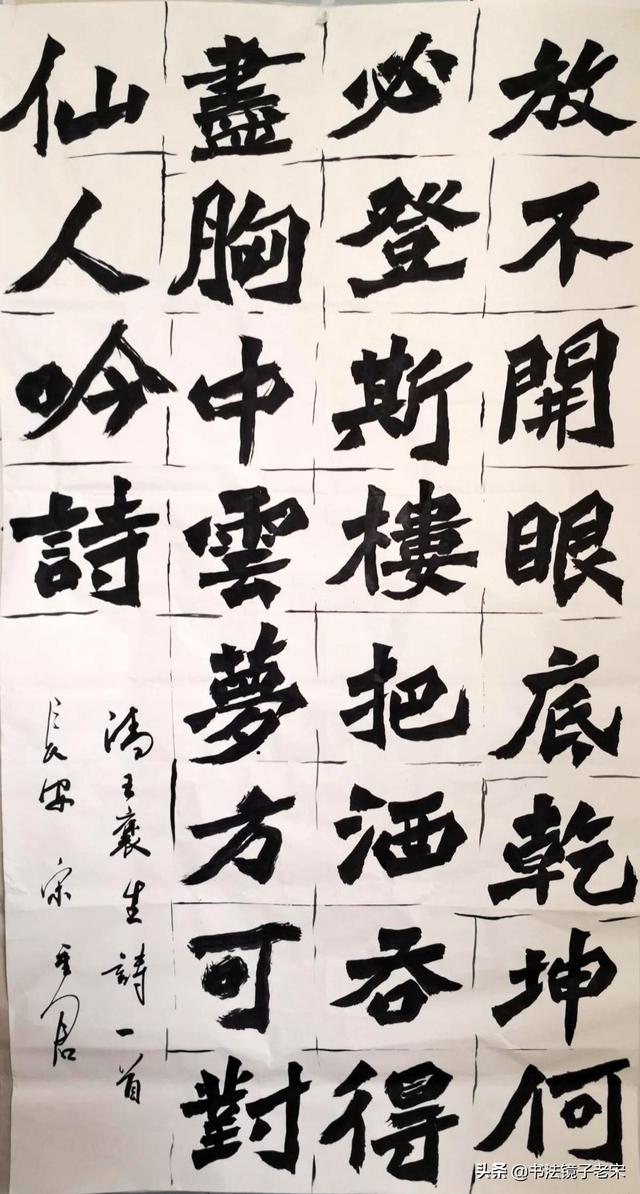 放不開眼底乾坤何
必登斯樓把酒吞得
盡胸中雲夢方可對
仙人吟詩
清王褒生詩一首
長安宋
头条 @书法镜子老宋